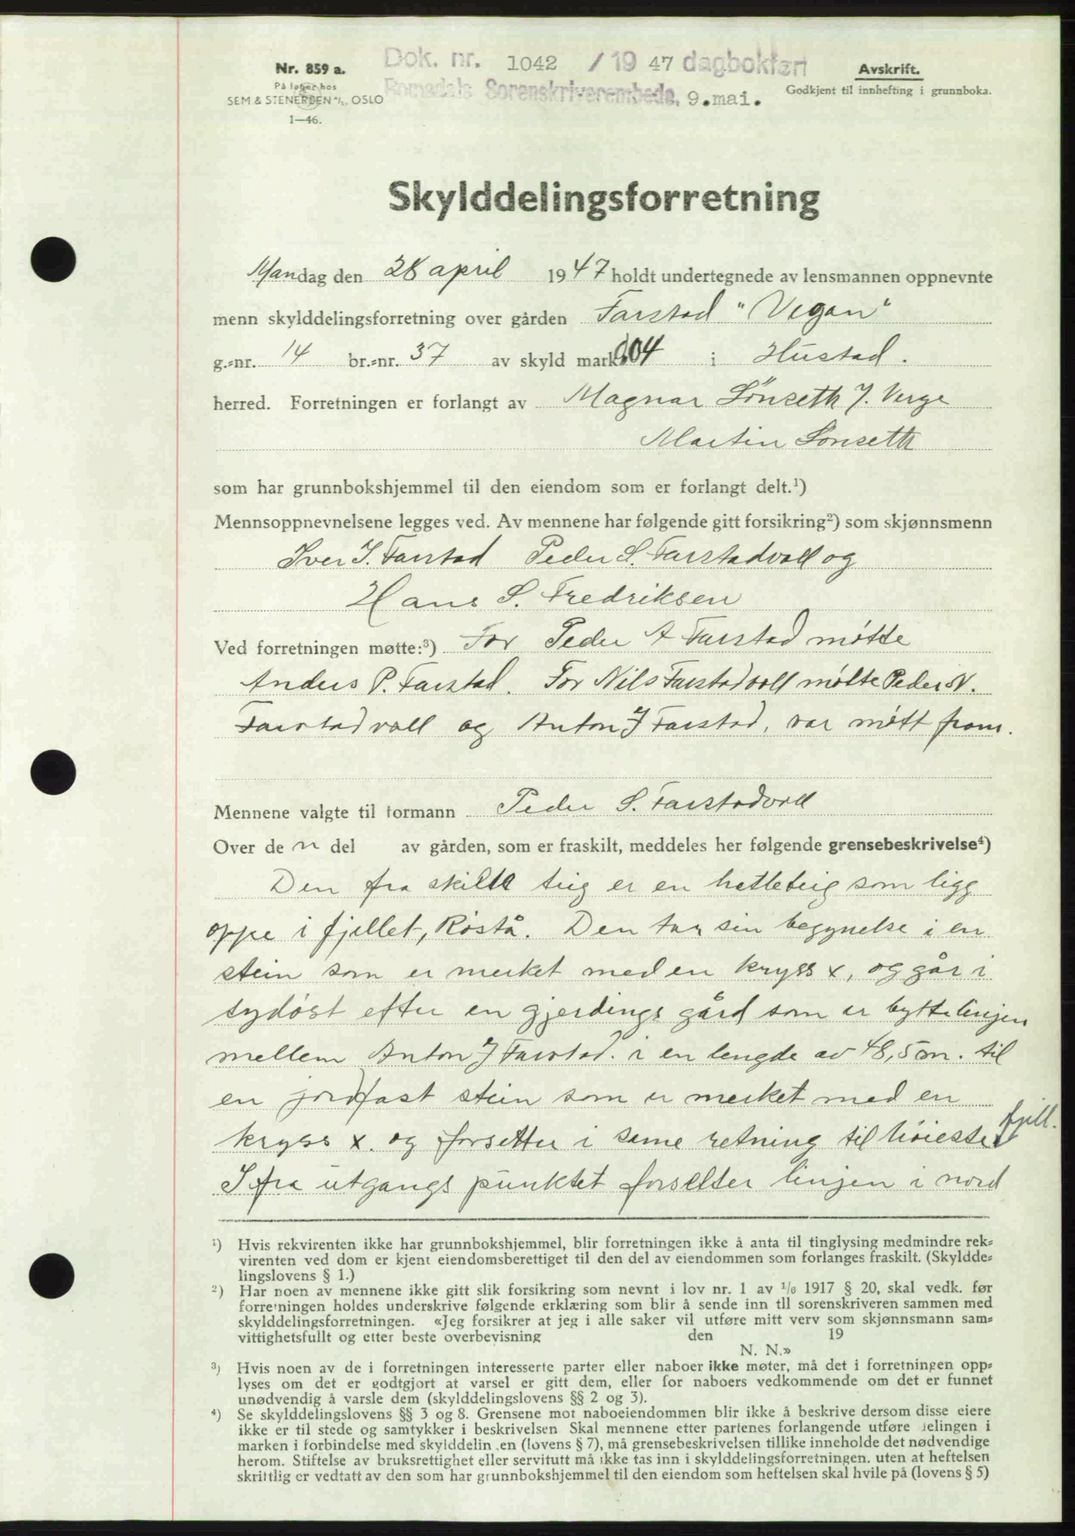 Nr. 859 a.
På lager hos
SEM & STENERSEN A/S, OSLO
1—46.
Dok. nr. 1042 / 19 47 dagbokført
Romsdals Sorenskriverembede, 9.mai.
Avskrift.
Godkjent til innhefting i grunnboka.
Skylddelingsforretning
Mandag den 28 april 1947 holdt undertegnede av lensmannen oppnevnte
menn skylddelingsforretning over gården Farstad "Vegan"
g.=nr. 14 br.=nr. 37 av skyld mark 0.04 i Hustad.
herred. Forretningen er forlangt av Magnar Sønseth f. Verge
Martin Sønseth
som har grunnbokshjemmel til den eiendom som er forlangt delt.¹)
Mennsoppnevnelsene legges ved. Av mennene har følgende gitt forsikring²) som skjønnsmenn
Iver J. Farstad Peder S. Farstadvoll og
Hans S. Fredriksen
Ved forretningen møtte:³) For Peder A Farstad møtte
Anders P. Farstad. For Nils Farstadvoll møtte Peder N.
Farstadvoll og Anton J Farstad, var møtt fram.
Mennene valgte til formann Peder S. Farstadvoll
Over de n del av gården, som er fraskilt, meddeles her følgende grensebeskrivelse⁴)
Den fra skilte teig er en hatleteig som ligg
oppe i fjellet, Røstå. Den tar sin begynelse i en
stein som er merket med en kryss x, og går i
sydøst efter en gjerdings gård som er byttelinjen
mellem Anton J Farstad. i en lengde av 48,5 m. til
en jordfast stein som er merket med en
kryss x. og forsetter i same retning til høieste fjell.
I fra utgangs punktet forsetter linjen i nord
¹) Hvis rekvirenten ikke har grunnbokshjemmel, blir forretningen ikke å anta til tinglysing medmindre rek=
virenten ved dom er kjent eiendomsberettiget til den del av eiendommen som forlanges fraskilt. (Skyldde=
lingslovens § 1.)
²) Har noen av mennene ikke gitt slik forsikring som nevnt i lov nr. 1 av 1/6 1917 § 20, skal vedk. før
forretningen holdes underskrive følgende erklæring som blir å sende inn til sorenskriveren sammen med
skylddelingsforretningen. «Jeg forsikrer at jeg i alle saker vil utføre mitt verv som skjønnsmann sam=
vittighetsfullt og etter beste overbevisning den 19
N. N.»
³) Hvis noen av de i forretningen interesserte parter eller naboer ikke møter, må det i forretningen opp=
lyses om det er godtgjort at varsel er gitt dem, eller for naboers vedkommende om det er funnet
unødvendig å varsle dem (skylddelingslovens §§ 2 og 3).
⁴) Se skylddelingslovens §§ 3 og 8. Grensene mot naboeiendommen blir ikke å beskrive dersom disse eiere
ikke er til stede og samtykker i beskrivelsen Skal mennene etter partenes forlangende utføre delingen i
marken i forbindelse med skylddelin en (lovens § 7), må grensebeskrivelsen tillike inneholde det nødvendige
herom. Stiftelse av bruksrettighet eller servitutt må ikke tas inn i skylddelingsforretningen. uten at heftelsen
skriftlig er vedtatt av den som har grunnbokshjemmel til den eiendom som heftelsen skal hvile på (lovens § 5)